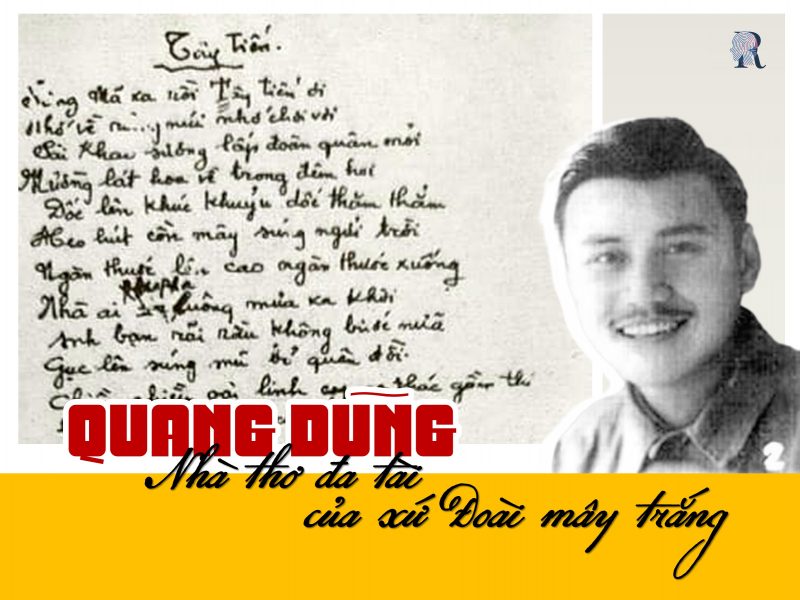 R
Tây Tiến.
Sông Mã xa rồi Tây Tiến ơi
Nhớ về rừng núi nhớ chơi vơi
Sài Khao sương lấp đoàn quân mỏi
Mường lát hoa về trong đêm hơi
Dốc lên khúc khuỷu dốc thăm thẳm
Heo hút cồn mây súng ngửi trời
Ngàn thước lên cao ngàn thước xuống
Nhà ai luông mưa xa khơi
Anh bạn rãi rầu không bước nữa
Gục lên súng mũ bỏ quên đời.
Chiều chiều oai linh thác gầm
QUANG DŨNG
Nhà thơ đa tài
của xứ Đoài mây trắng
2